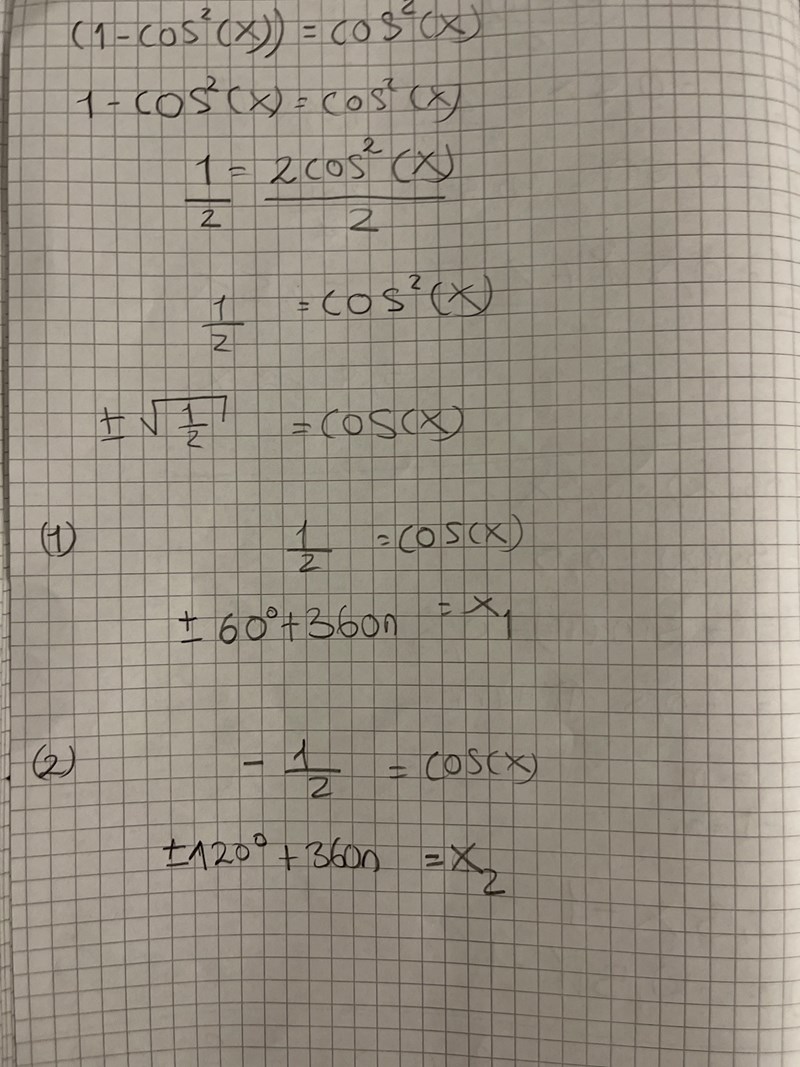 (1-cos²(x)) = cos²(x)
1-cos²(x) = cos²(x)
1/2 = 2cos²(x)/2
1/2 = cos²(x)
± √(1/2) = cos(x)
(1) 1/2 = cos(x)
± 60° + 360n = x₁
(2) - 1/2 = cos(x)
±120° + 360n = x₂